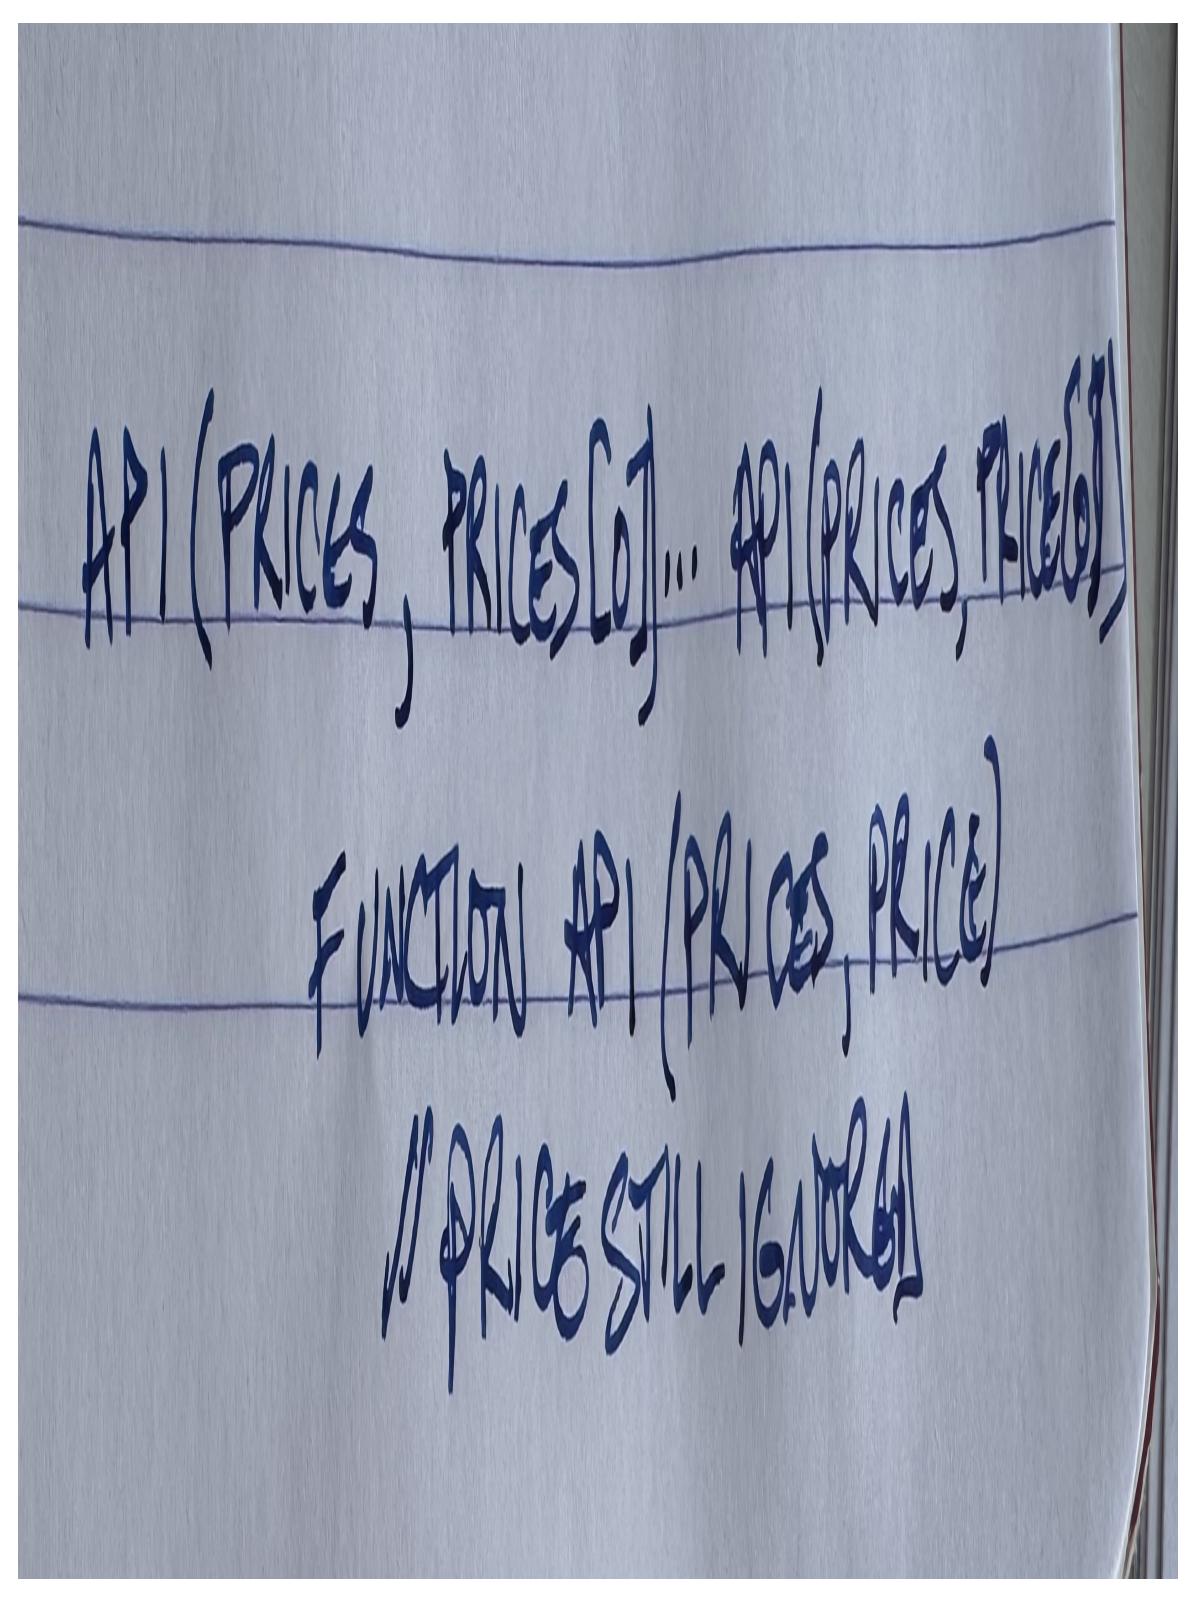 API (PRICES, PRICES[0]... API (PRICES, PRICE[0])
FUNCTION API (PRICES, PRICE)
// PRICE STILL IGNORED